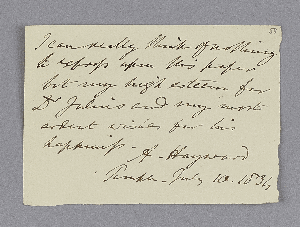 I can really think of nothing
to express upon this paper
but my high esteem for
Dr Julius and my most
ardent wishes for his
happiness -
A. Hayward
Temple - July 10. 1834